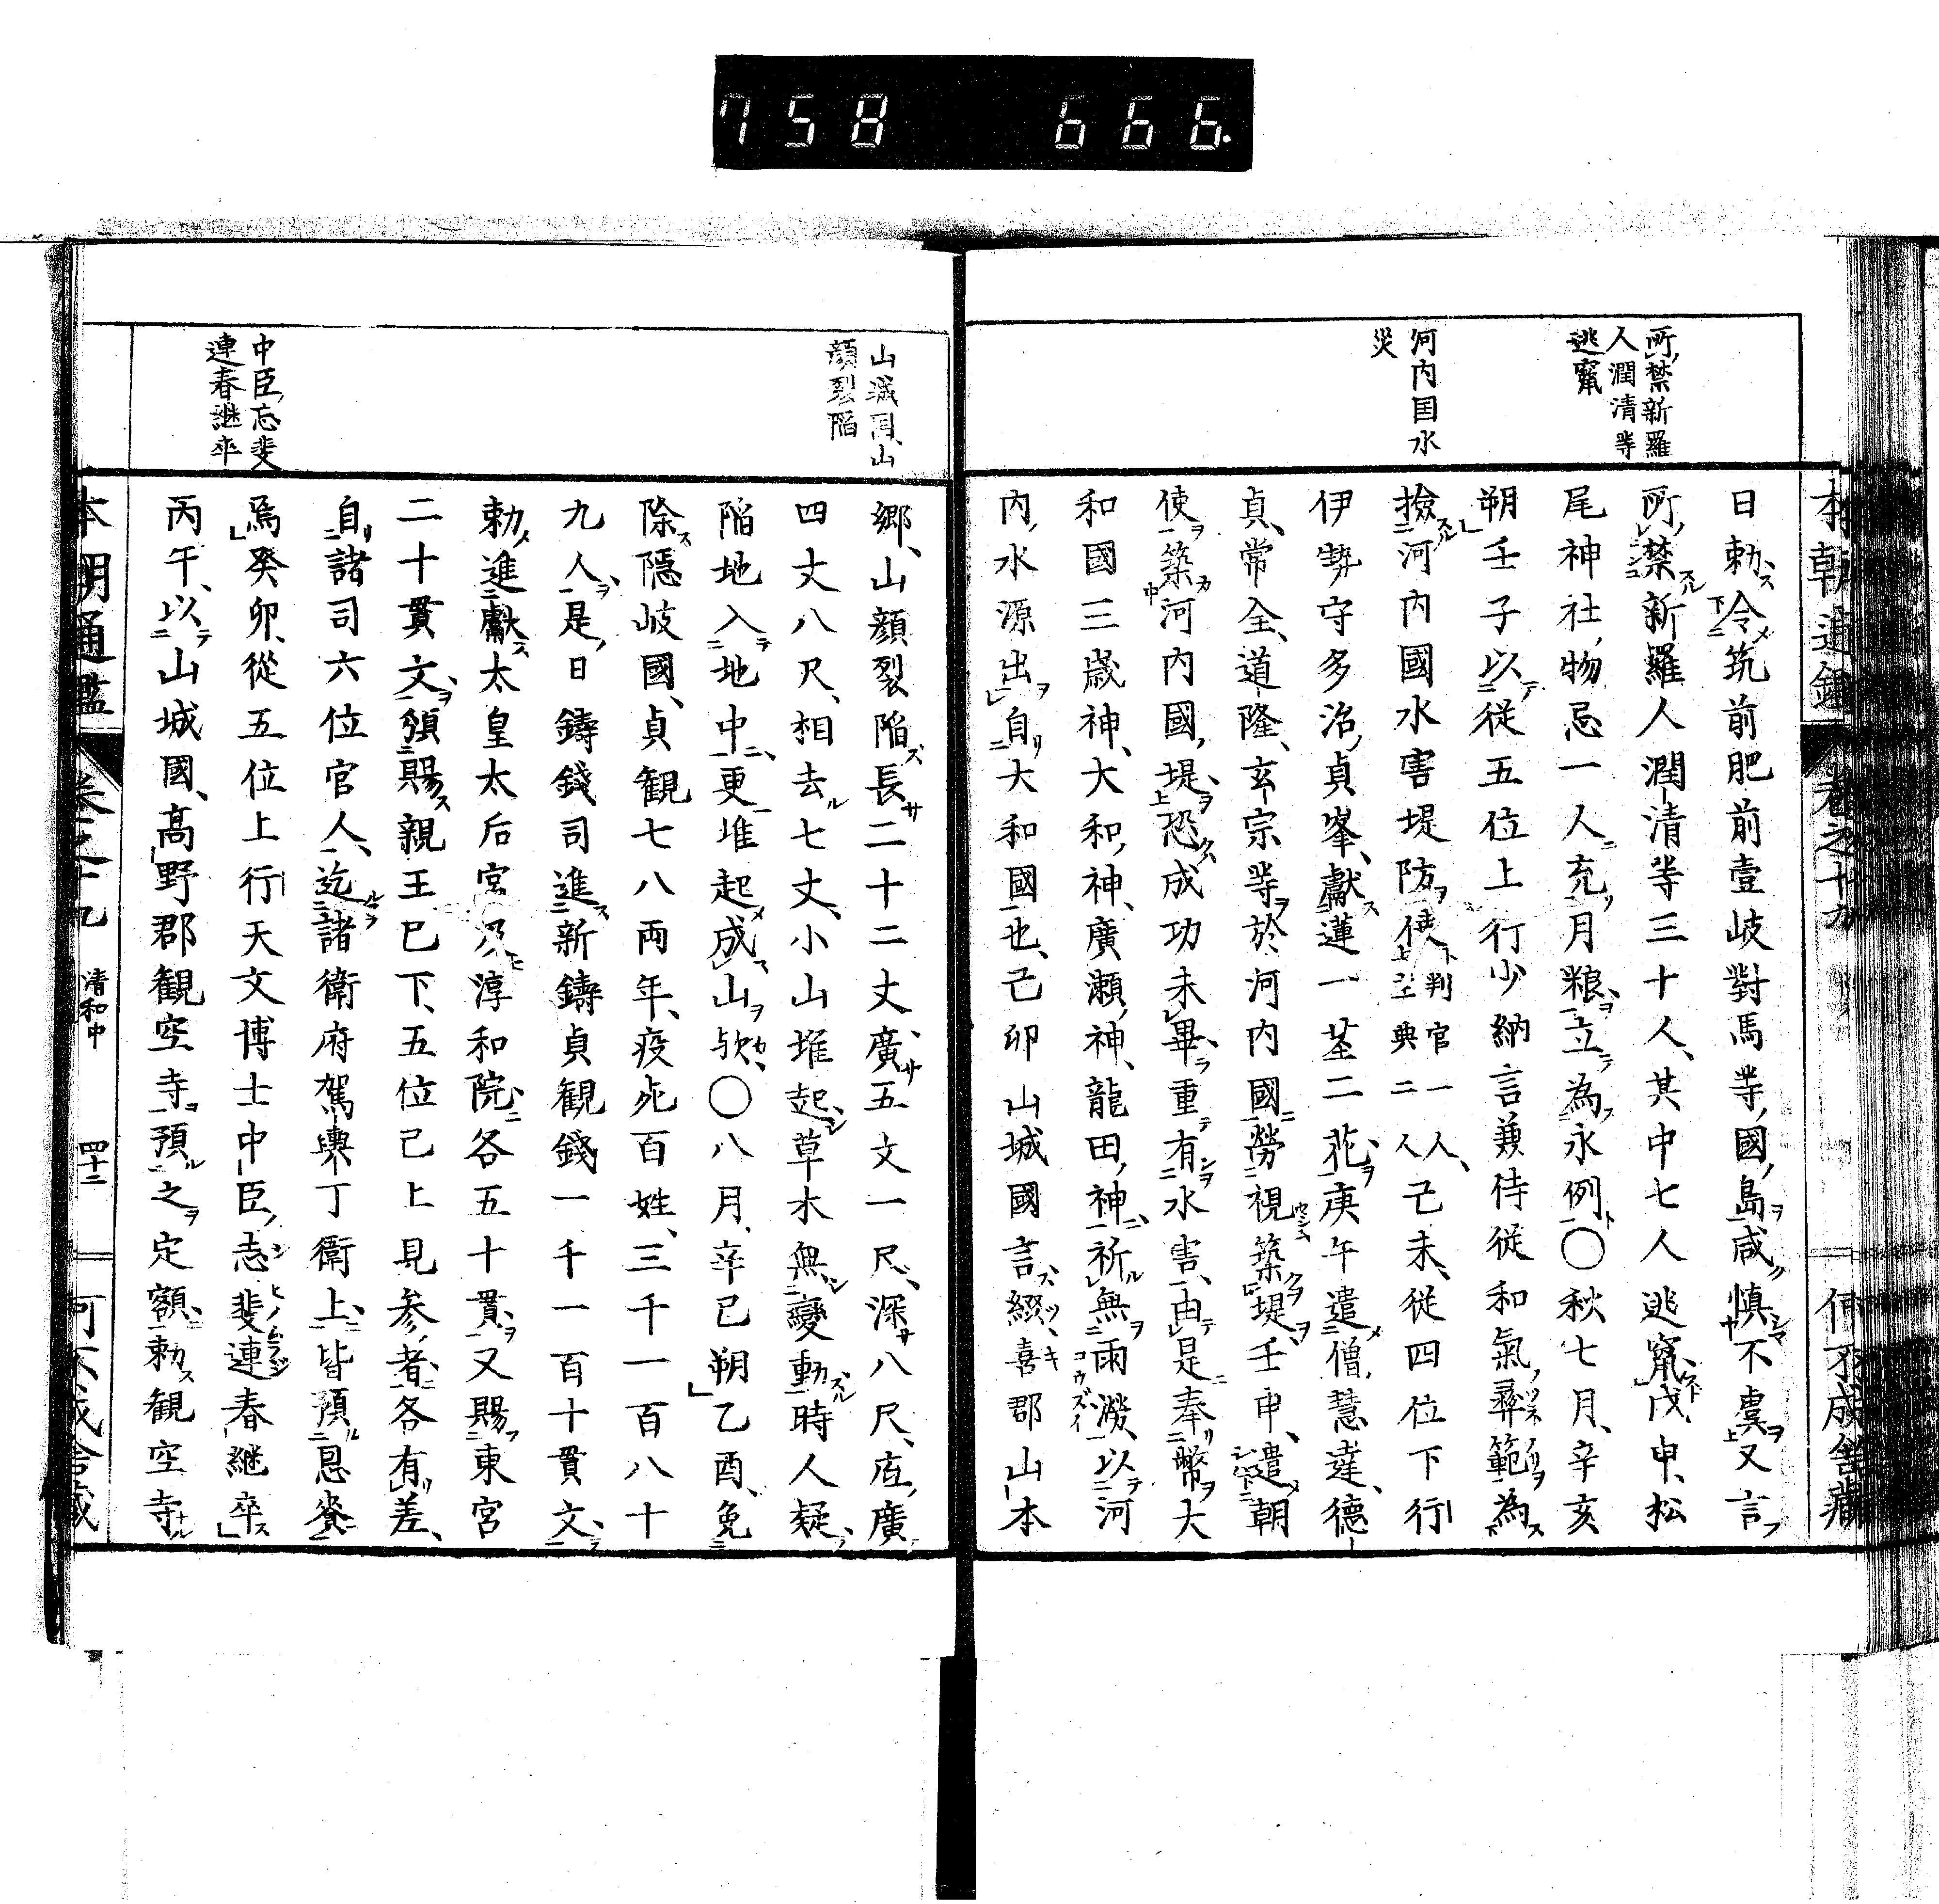 758 666.
本朝通鑑 卷之十九 何不成舍藏
所禁新羅
人潤清等
逃竄
河内国水
災
日勅令筑前肥前壹岐對馬等國島咸慎不虞又言
所禁新羅人潤清等三十人其中七人逃竄戊申松
尾神社物忌一人充月粮立為永例〇秋七月辛亥
朔壬子以從五位上行少納言兼侍從和氣彝範為
撿河内國水害堤防使判官一人典二人己未從四位下行
伊勢守多治貞峯獻蓮一莖二花庚午遣僧慧達德
貞常全道隆玄宗等於河内國勞視築堤壬申遣朝
使築河内國堤恐成功未畢重有水害由是奉幣大
和國三歳神大和神廣瀬神龍田神祈無雨澇以河
内水源出自大和國也己卯山城國言綴喜郡山本
山城国山
顔裂陷
中臣志斐
連春継卒
郷山顔裂陷長二十二丈廣五丈一尺深八尺底廣
四丈八尺相去七丈小山堆起草木無變動時人疑
陷地入地中更堆起成山歟〇八月辛已朔乙酉免
除隱岐國貞観七八両年疫死百姓三千一百八十
九人是日鑄錢司進新鑄貞観錢一千一百十貫文
勅進獻太皇太后宮及淳和院各五十貫又賜東宮
二十貫文頒賜親王已下五位已上見參者各有差
自諸司六位官人迄諸衛府駕輿丁衛上皆預恩賚
焉癸卯從五位上行天文博士中臣志斐連春継卒
丙午以山城國髙野郡観空寺預之定額勅観空寺
本朝通鑑 卷之十九 清和中 四十二 何不成舍藏